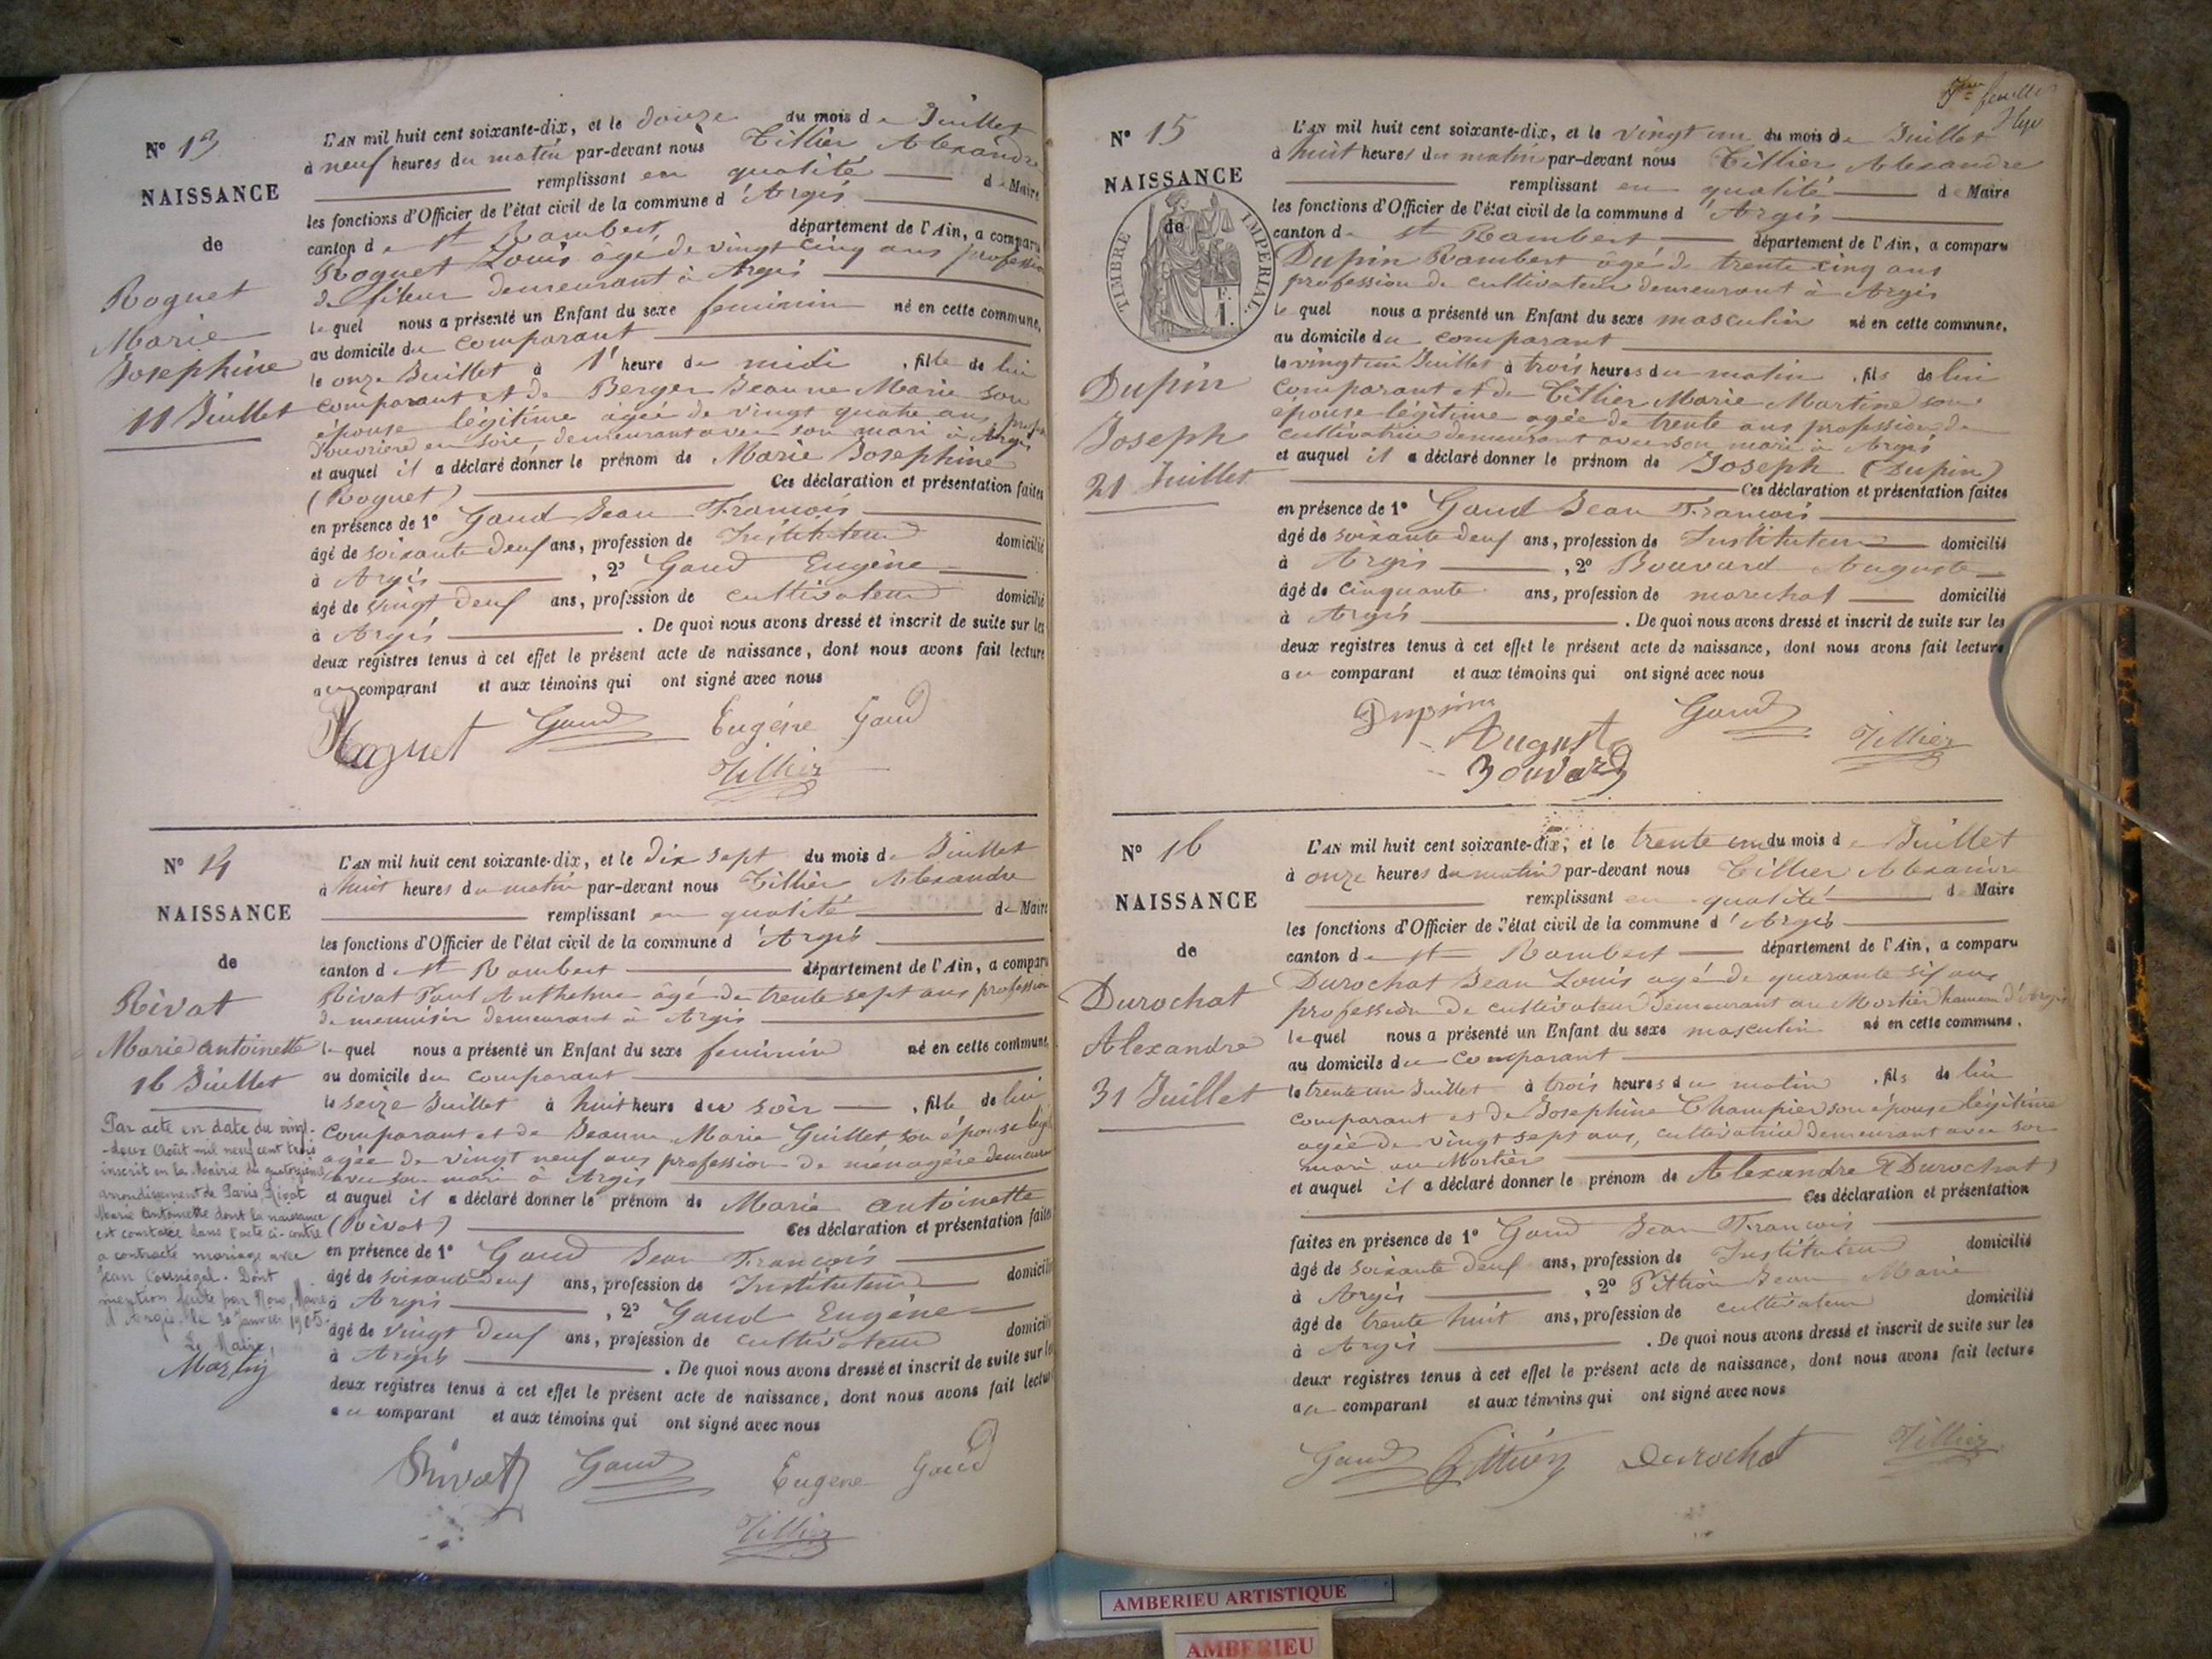 N° 13
NAISSANCE
de
Roguet
Marie
Josephine
11 Juillet
L'AN mil huit cent soixante-dix, et le douze du mois de Juillet
à neuf heures du matin par-devant nous Tillier Alexandre
remplissant en qualité de Maire
les fonctions d'Officier de l'état civil de la commune d'Argis
canton de St Rambert département de l'Ain, a comparu
Roguet Louis âgé de vingt cinq ans profession
de fileur demeurant à Argis
lequel nous a présenté un Enfant du sexe feminin né en cette commune,
au domicile du comparant
le onze Juillet à 1' heure de midi , fille de lui
comparant et de Berger Jeanne Marie son
épouse légitime agée de vingt quatre ans
d'ouvrière en soie, demeurant avec son mari à Argis
et auquel il a déclaré donner le prénom de Marie Josephine
(Roguet) Ces déclaration et présentation faites
en présence de 1° Gaud Jean François
âgé de soixante deuf ans, profession de Instituteur domicilié
à Argis , 2° Gaud Eugène
âgé de vingt deuf ans, profession de cultivateur domicilié
à Argis . De quoi nous avons dressé et inscrit de suite sur les
deux registres tenus à cet effet le présent acte de naissance, dont nous avons fait lecture
au comparant et aux témoins qui ont signé avec nous
Roguet Gaud Eugéne Gaud
Tillier
N° 14
NAISSANCE
de
Rivat
Marie Antoinette
16 Juillet
Par acte en date du vingt-
-deux Août mil neuf cent trois
inscrit en la Mairie du quatorzième
arrondissement de Paris, Rivat
Marie Antoinette dont la naissance
est constatée dans l'acte ci-contre
a contracté mariage avec
Jean . Dont
mention faite par Nous, Maire
d'Argis, le 30 Janvier 1905.
Le Maire,
Martin
L'AN mil huit cent soixante-dix, et le dix sept du mois de Juillet
à huit heures du matin par-devant nous Tillier Alexandre
remplissant en qualité de Maire
les fonctions d'Officier de l'état civil de la commune d'Argis
canton de St Rambert département de l'Ain, a comparu
Rivat Paul Anthelme âgé de trente sept ans profession
de menuisier demeurant à Argis
lequel nous a présenté un Enfant du sexe feminin né en cette commune,
au domicile du comparant
le seize Juillet à huit heure du soir , fille de lui
comparant et de Jeanne Marie Guillet son épouse
agée de vingt neuf ans profession de ménagère
avec son mari à Argis
et auquel il a déclaré donner le prénom de Marie Antoinette
(Rivat) Ces déclaration et présentation faites
en présence de 1° Gaud Jean François
âgé de soixante deuf ans, profession de Instituteur domicilié
à Argis , 2° Gaud Eugène
âgé de vingt deuf ans, profession de cultivateur domicilié
à Argis . De quoi nous avons dressé et inscrit de suite sur les
deux registres tenus à cet effet le présent acte de naissance, dont nous avons fait lecture
au comparant et aux témoins qui ont signé avec nous
Rivat Gaud Eugene Gaud
Tillier
feuillet
N° 15
NAISSANCE
de
TIMBRE IMPERIAL
F.
1.
Dupin
Joseph
21 Juillet
L'AN mil huit cent soixante-dix, et le vingt un du mois de Juillet
à huit heures du matin par-devant nous Tillier Alexandre
remplissant en qualité de Maire
les fonctions d'Officier de l'état civil de la commune d'Argis
canton de St Rambert département de l'Ain, a comparu
Dupin Rambert âgé de trente cinq ans
profession de cultivateur demeurant à Argis
lequel nous a présenté un Enfant du sexe masculin né en cette commune,
au domicile du comparant
le vingt un Juillet à trois heures du matin , fils de lui
comparant et de Tillier Marie Martine son
épouse légitime agée de trente ans profession de
cultivatrice demeurant avec son mari à Argis
et auquel il a déclaré donner le prénom de Joseph (Dupin)
Ces déclaration et présentation faites
en présence de 1° Gaud Jean François
âgé de soixante deuf ans, profession de Instituteur domicilié
à Argis , 2° Bouvard Auguste
âgé de cinquante ans, profession de marechal domicilié
à Argis . De quoi nous avons dressé et inscrit de suite sur les
deux registres tenus à cet effet le présent acte de naissance, dont nous avons fait lecture
au comparant et aux témoins qui ont signé avec nous
Dupin Gaud
Auguste Tillier
Bouvard
N° 16
NAISSANCE
de
Durochat
Alexandre
31 Juillet
L'AN mil huit cent soixante-dix, et le trente un du mois de Juillet
à onze heures du matin par-devant nous Tillier Alexandre
remplissant en qualité de Maire
les fonctions d'Officier de l'état civil de la commune d'Argis
canton de St Rambert département de l'Ain, a comparu
Durochat Jean Louis agé de quarante six ans
profession de cultivateur demeurant au Mortier hameau d'Argis
lequel nous a présenté un Enfant du sexe masculin né en cette commune,
au domicile du comparant
le trente un Juillet à trois heures du matin , fils de lui
comparant et de Josephine Champier son épouse légitime
agée de vingt sept ans, cultivatrice demeurant avec son
mari au Mortier
et auquel il a déclaré donner le prénom de Alexandre (Durochat)
Ces déclaration et présentation
faites en présence de 1° Gaud Jean François
âgé de soixante deuf ans, profession de Instituteur domicilié
à Argis , 2° Pittion Jean Marie
âgé de trente huit ans, profession de cultivateur domicilié
à Argis . De quoi nous avons dressé et inscrit de suite sur les
deux registres tenus à cet effet le présent acte de naissance, dont nous avons fait lecture
au comparant et aux témoins qui ont signé avec nous
Gaud Pittion Durochat Tillier
AMBERIEU ARTISTIQUE
AMBERIEU